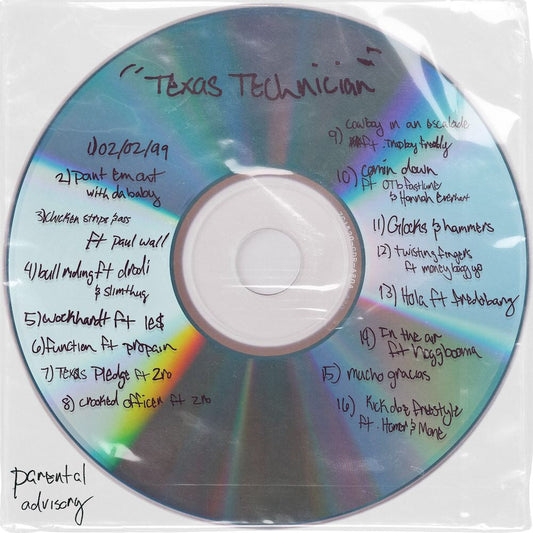 "TEXAS TEChnician"
1) 02/02/99
2) paint em out
with dababy
3) chicken strips & ass
ft paul wall
4) bull riding ft drodi
& slimthug
5) wockhardt ft le$
6) function ft propain
7) TEXAS Pledge ft Zro
8) crooked officer ft zro
9) cowboy in an escalade
ft
10) comin down
ft OTB fastlane
& Hannah Everhart
11) Glocks & hammers
12) twisting fingers
ft moneybagg yo
13) Hola ft fredobang
14) In the air
ft hoggbooma
15) mucho gracias
16) Kickdoe freestyle
ft. Homer & Mone
parental
advisory